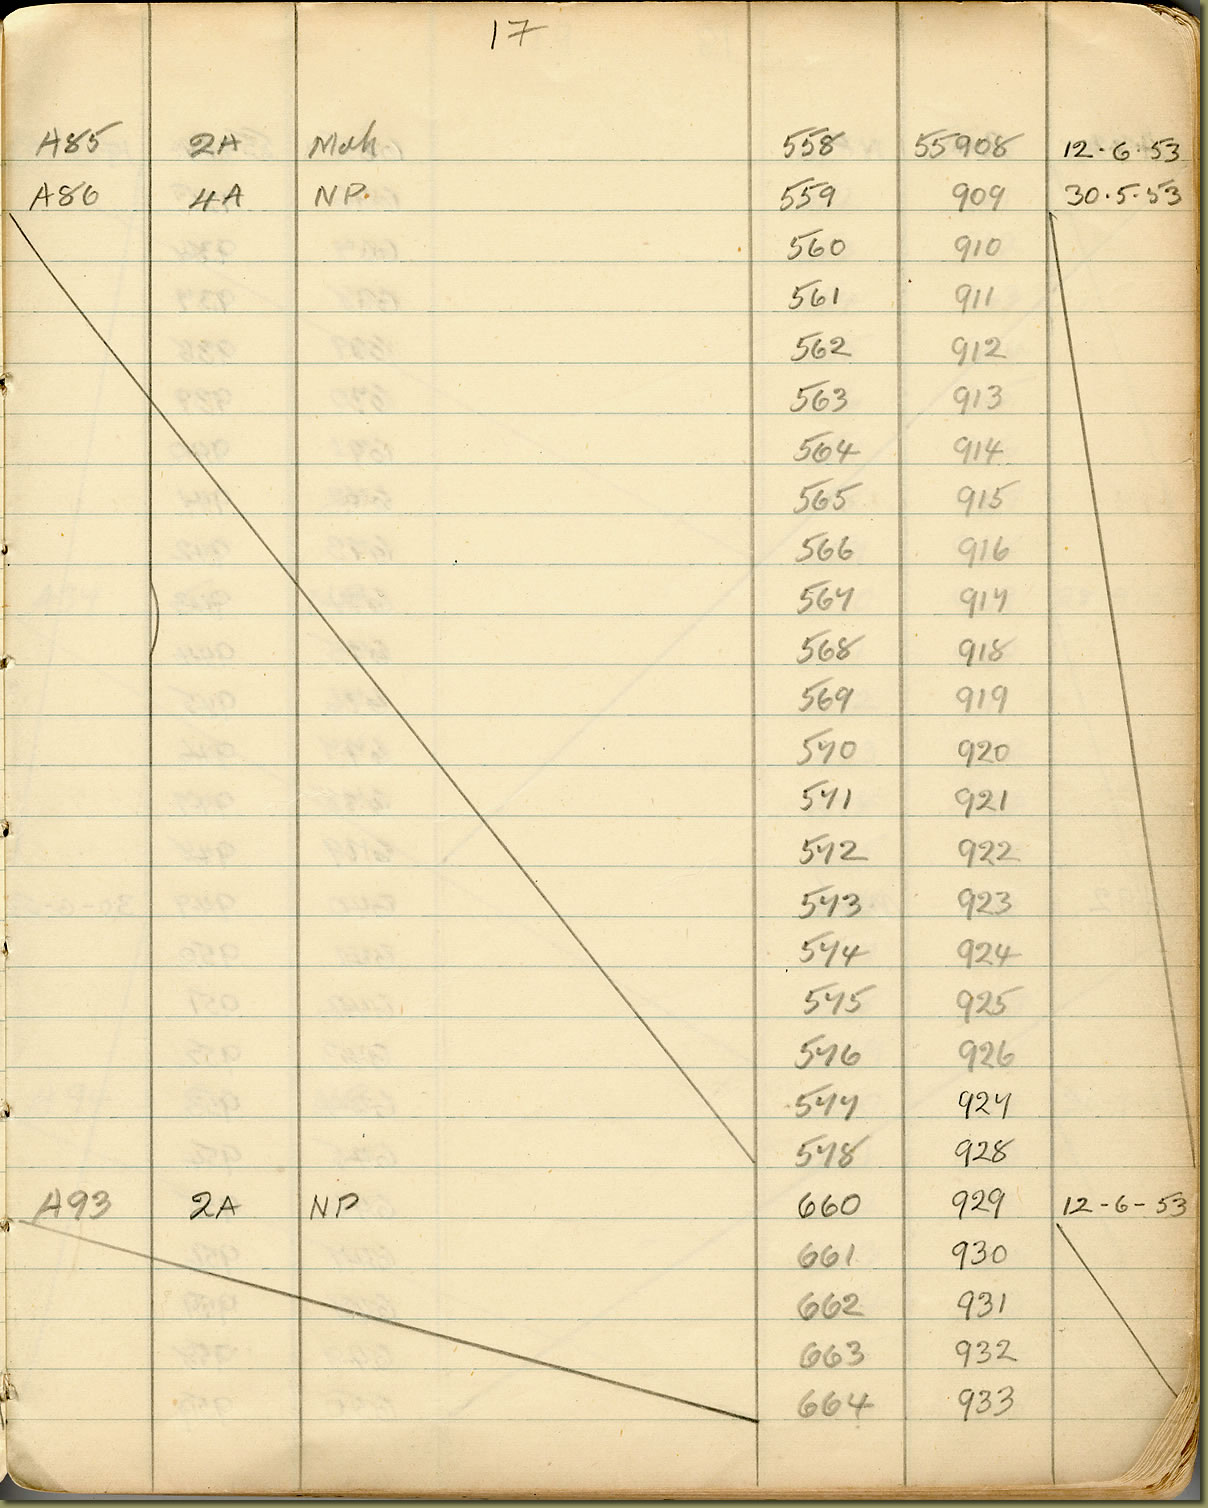 17
A85 2A Mak 558 55908 12·6·53
A86 4A NP. 559 909 30·5·53
560 910
561 911
562 912
563 913
564 914
565 915
566 916
567 917
568 918
569 919
570 920
571 921
572 922
573 923
574 924
575 925
576 926
577 927
578 928
A93 2A NP 660 929 12-6-53
661 930
662 931
663 932
664 933